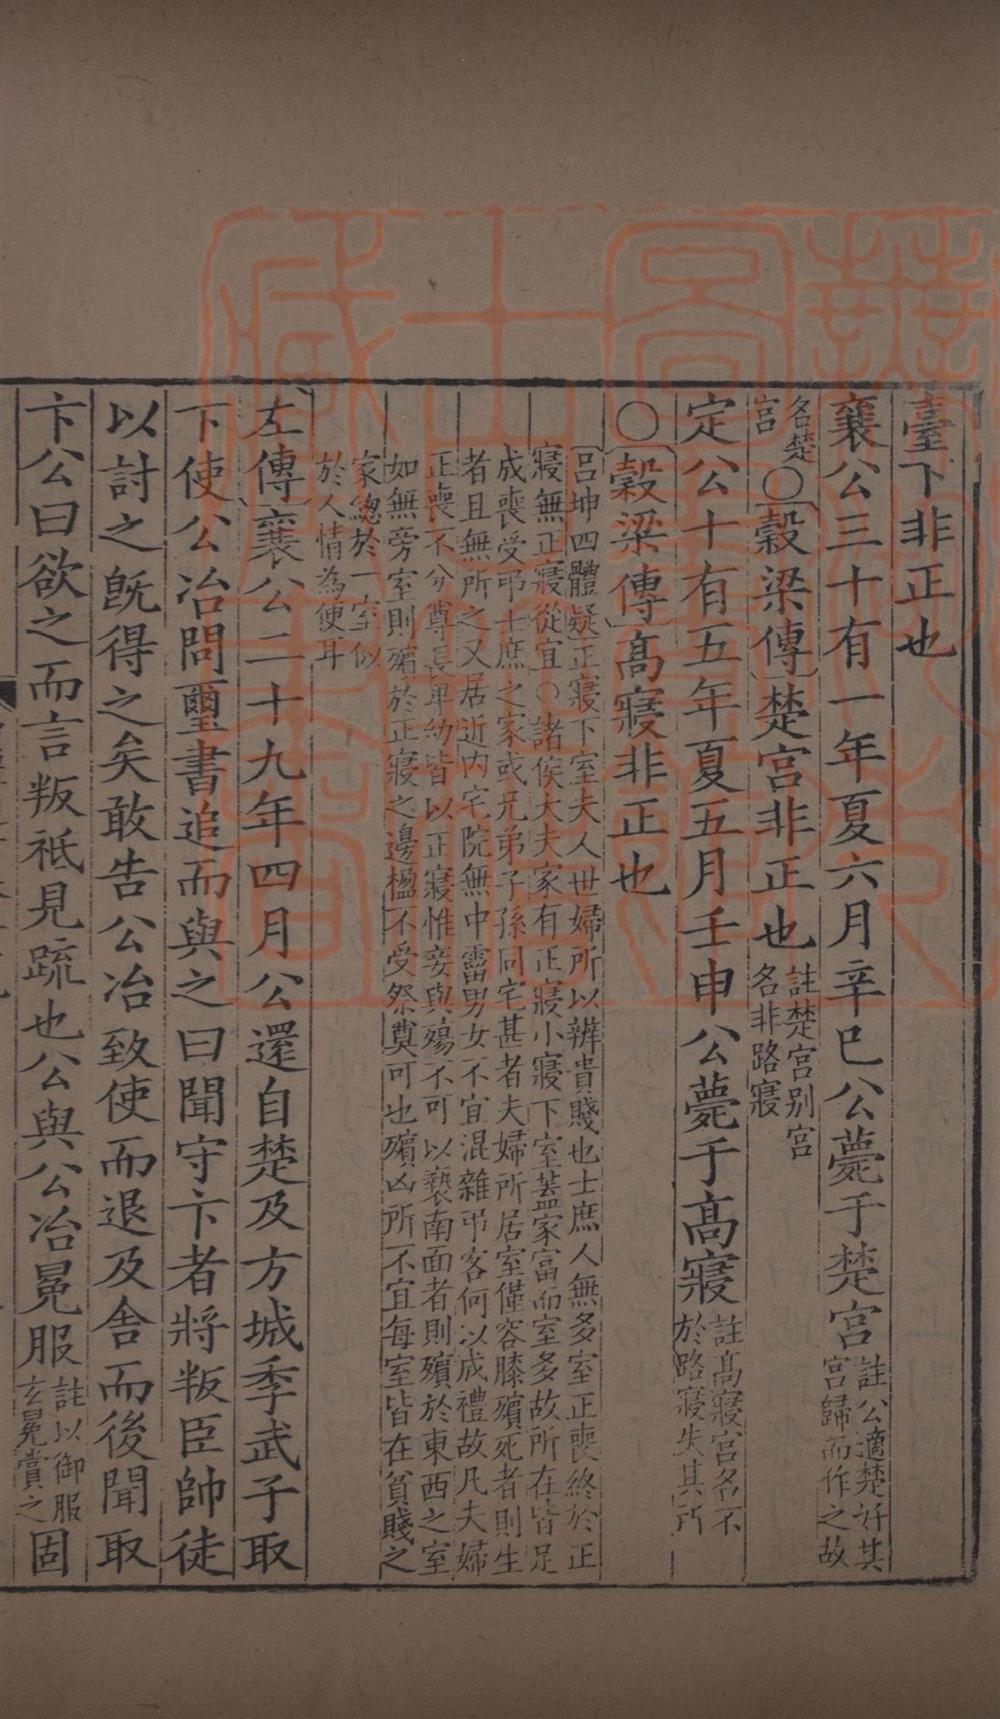 臺下非正也
襄公三十有一年夏六月辛巳公薨于楚宮註公適楚好其宮歸而作之故
名楚宮○穀梁傳楚宮非正也註楚宮别宮名非路寢
定公十有五年夏五月壬申公薨于高寢註高寢宮名不於路寢失其所
○穀梁傳高寢非正也
呂坤四體疑正寢下室夫人世婦所以辨貴賤也士庶人無多室正喪終於正
寢無正寢從宜○諸侯大夫家有正寢小寢下室葢家富而室多故所在皆足
成喪受弔士庶之家或兄弟子孫同宅甚者夫婦所居室僅容膝殯死者則生
者且無所之又居近内宅院無中霤男女不宜混雜弔客何以成禮故凡夫婦
正喪不分尊長卑幼皆以正寢惟妾與殤不可以褻南面者則殯於東西之室
如無旁室則殯於正寢之邊楹不受祭奠可也殯凶所不宜每室皆在貧賤之
家總於一室似
於人情為便耳
左傳襄公二十九年四月公還自楚及方城季武子取
卞使公冶問璽書追而與之曰聞守卞者將叛臣帥徒
以討之旣得之矣敢告公冶致使而退及舍而後聞取
卞公曰欲之而言叛祗見疏也公與公冶冕服註以御服玄冕賞之固